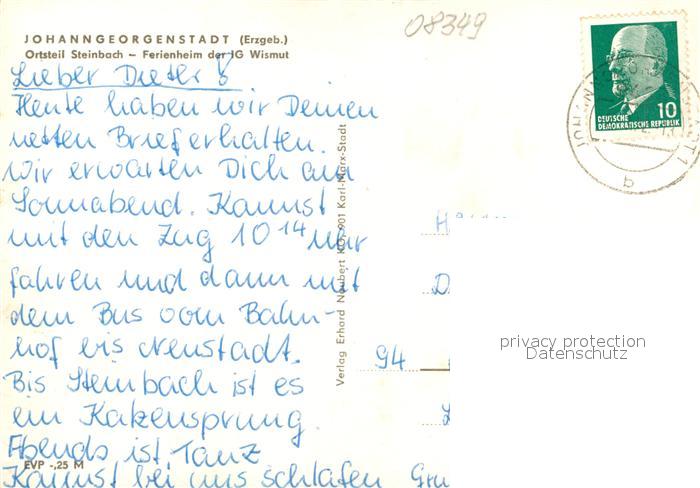 08349
JOHANNGEORGENSTADT (Erzgeb.)
Ortsteil Steinbach – Ferienheim der IG Wismut
Lieber Dieter!
Heute haben wir Deinen
netten Brief erhalten.
Wir erwarten Dich am
Sonnabend. Kannst
mit den Zug 10 14 Uhr
fahren und dann mit
dem Bus vom Bahn-
hof bis Neustadt.
Bis Steinbach ist es
ein Katzensprung.
Abends ist Tanz
EVP -,25 M
Kannst bei uns schlafen Gru
Verlag Erhard Neubert KG, 901 Karl-Marx-Stadt
10
DEUTSCHE
DEMOKRATISCHE REPUBLIK
b
H
D
94
privacy protection
Datenschutz